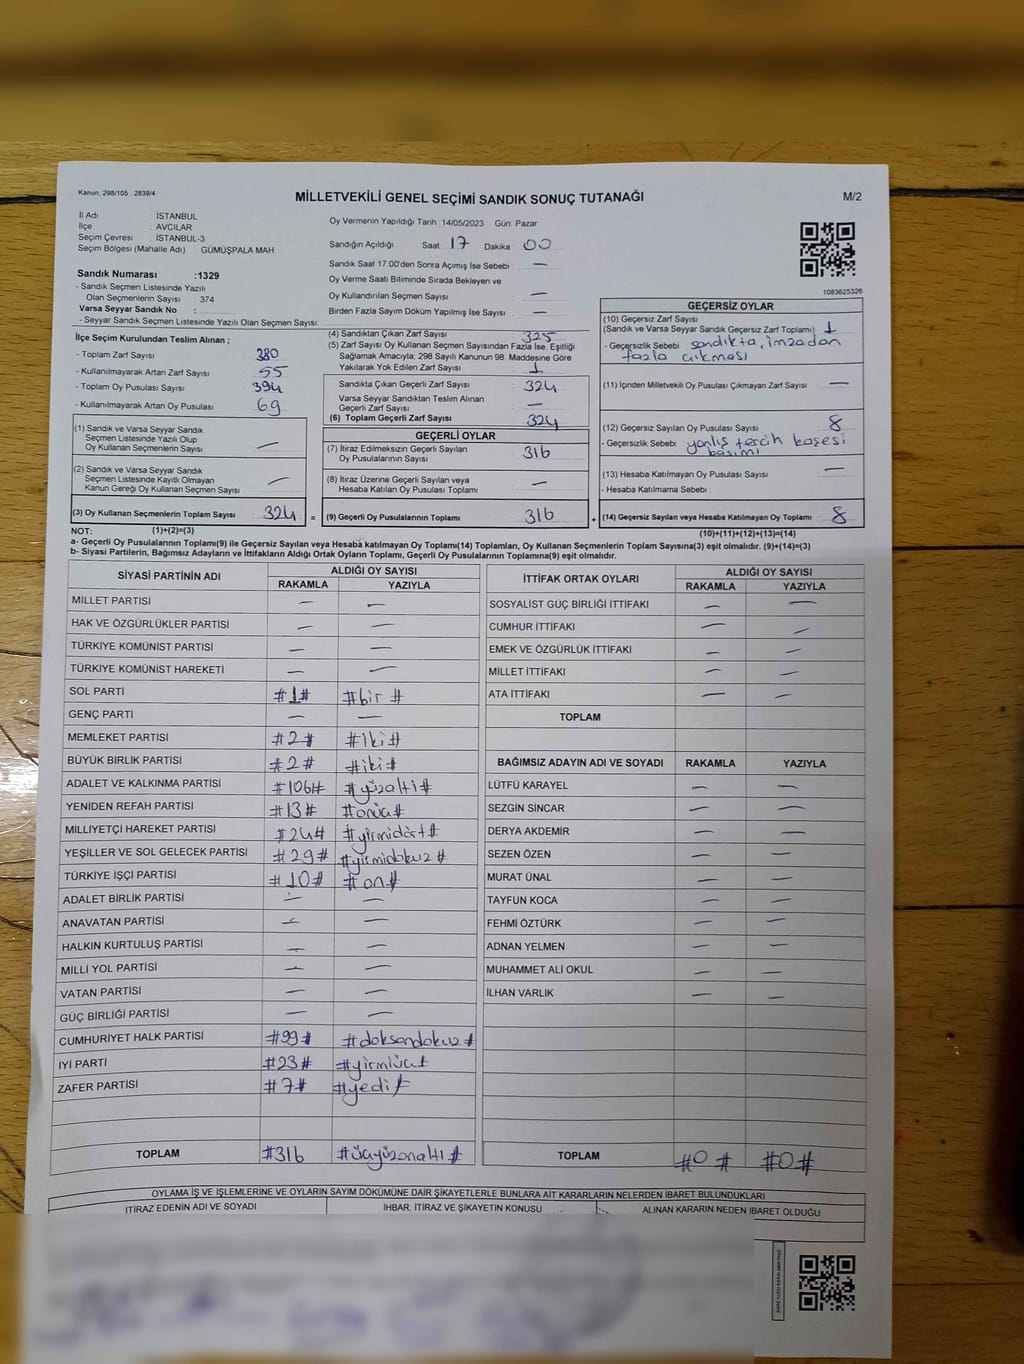 Kanun, 298/105 , 2839/4
MİLLETVEKİLİ GENEL SEÇİMİ SANDIK SONUÇ TUTANAĞI
M/2
İl Adı : İSTANBUL
İlçe : AVCILAR
Seçim Çevresi : İSTANBUL-3
Seçim Bölgesi (Mahalle Adı) : GÜMÜŞPALA MAH.
Sandık Numarası :1329
- Sandık Seçmen Listesinde Yazılı
Olan Seçmenlerin Sayısı : 374
Varsa Seyyar Sandık No :
- Seyyar Sandık Seçmen Listesinde Yazılı Olan Seçmen Sayısı:
Oy Vermenin Yapıldığı Tarih :14/05/2023 Gün: Pazar
Sandığın Açıldığı Saat : 17 Dakika : 00
Sandık Saat 17:00'den Sonra Açımış İse Sebebi : —
Oy Verme Saati Bitiminde Sırada Bekleyen ve
Oy Kullandırılan Seçmen Sayısı : —
Birden Fazla Sayım Döküm Yapılmış İse Sayısı : —
1083625326
İlçe Seçim Kurulundan Teslim Alınan ;
- Toplam Zarf Sayısı : 380
- Kullanılmayarak Artan Zarf Sayısı : 55
- Toplam Oy Pusulası Sayısı : 394
- Kullanılmayarak Artan Oy Pusulası : 69
(1) Sandık ve Varsa Seyyar Sandık
Seçmen Listesinde Yazılı Olup
Oy Kullanan Seçmenlerin Sayısı : —
(2) Sandık ve Varsa Seyyar Sandık
Seçmen Listesinde Kayıtlı Olmayan
Kanun Gereği Oy Kullanan Seçmen Sayısı : —
(3) Oy Kullanan Seçmenlerin Toplam Sayısı : 324 =
(4) Sandıktan Çıkan Zarf Sayısı : 325
(5) Zarf Sayısı Oy Kullanan Seçmen Sayısından Fazla İse, Eşitliği
Sağlamak Amacıyla; 298 Sayılı Kanunun 98. Maddesine Göre
Yakılarak Yok Edilen Zarf Sayısı : 1
Sandıkta Çıkan Geçerli Zarf Sayısı : 324
Varsa Seyyar Sandıktan Teslim Alınan
Geçerli Zarf Sayısı : —
(6) Toplam Geçerli Zarf Sayısı : 324
GEÇERLİ OYLAR
(7) İtiraz Edilmeksizin Geçerli Sayılan
Oy Pusulalarının Sayısı : 316
(8) İtiraz Üzerine Geçerli Sayılan veya
Hesaba Katılan Oy Pusulası Toplamı : —
(9) Geçerli Oy Pusulalarının Toplamı : 316 +
GEÇERSİZ OYLAR
(10) Geçersiz Zarf Sayısı
(Sandık ve Varsa Seyyar Sandık Geçersiz Zarf Toplamı) : 1
- Geçersizlik Sebebi : sandıkta, imzadan
fazla çıkması
(11) İçinden Milletvekili Oy Pusulası Çıkmayan Zarf Sayısı : —
(12) Geçersiz Sayılan Oy Pusulası Sayısı : 8
- Geçersizlik Sebebi : yanlış tercih kaşesi
basımı
(13) Hesaba Katılmayan Oy Pusulası Sayısı : —
- Hesaba Katılmama Sebebi :
(14) Geçersiz Sayılan veya Hesaba Katılmayan Oy Toplamı : 8
NOT: (1)+(2)=(3)
(10)+(11)+(12)+(13)=(14)
a- Geçerli Oy Pusulalarının Toplamı(9) ile Geçersiz Sayılan veya Hesaba katılmayan Oy Toplamı(14) Toplamları, Oy Kullanan Seçmenlerin Toplam Sayısına(3) eşit olmalıdır. (9)+(14)=(3)
b- Siyasi Partilerin, Bağımsız Adayların ve İttifakların Aldığı Ortak Oyların Toplamı, Geçerli Oy Pusulalarının Toplamına(9) eşit olmalıdır.
SİYASİ PARTİNİN ADI ALDIĞI OY SAYISI
RAKAMLA YAZIYLA
MİLLET PARTİSİ — —
HAK VE ÖZGÜRLÜKLER PARTİSİ — —
TÜRKİYE KOMÜNİST PARTİSİ — —
TÜRKİYE KOMÜNİST HAREKETİ — —
SOL PARTİ #1# #bir #
GENÇ PARTİ — —
MEMLEKET PARTİSİ #2# #iki#
BÜYÜK BİRLİK PARTİSİ #2# #iki#
ADALET VE KALKINMA PARTİSİ #106# #yüzaltı#
YENİDEN REFAH PARTİSİ #13# #onüç#
MİLLİYETÇİ HAREKET PARTİSİ #24# #yirmidört#
YEŞİLLER VE SOL GELECEK PARTİSİ #29# #yirmidokuz#
TÜRKİYE İŞÇİ PARTİSİ #10# #on#
ADALET BİRLİK PARTİSİ — —
ANAVATAN PARTİSİ — —
HALKIN KURTULUŞ PARTİSİ — —
MİLLİ YOL PARTİSİ — —
VATAN PARTİSİ — —
GÜÇ BİRLİĞİ PARTİSİ — —
CUMHURİYET HALK PARTİSİ #99# #doksandokuz#
İYİ PARTİ #23# #yirmiüç#
ZAFER PARTİSİ #7# #yedi#
TOPLAM #316 #üçyüzonaltı#
İTTİFAK ORTAK OYLARI ALDIĞI OY SAYISI
RAKAMLA YAZIYLA
SOSYALİST GÜÇ BİRLİĞİ İTTİFAKI — —
CUMHUR İTTİFAKI — —
EMEK VE ÖZGÜRLÜK İTTİFAKI — —
MİLLET İTTİFAKI — —
ATA İTTİFAKI — —
TOPLAM
BAĞIMSIZ ADAYIN ADI VE SOYADI RAKAMLA YAZIYLA
LÜTFÜ KARAYEL — —
SEZGİN SİNCAR — —
DERYA AKDEMİR — —
SEZEN ÖZEN — —
MURAT ÜNAL — —
TAYFUN KOCA — —
FEHMİ ÖZTÜRK — —
ADNAN YELMEN — —
MUHAMMET ALİ OKUL — —
İLHAN VARLIK — —
TOPLAM #0 # #0#
OYLAMA İŞ VE İŞLEMLERİNE VE OYLARIN SAYIM DÖKÜMÜNE DAİR ŞİKAYETLERLE BUNLARA AİT KARARLARIN NELERDEN İBARET BULUNDUKLARI
İTİRAZ EDENİN ADI VE SOYADI İHBAR, İTİRAZ VE ŞİKAYETİN KONUSU ALINAN KARARIN NEDEN İBARET OLDUĞU